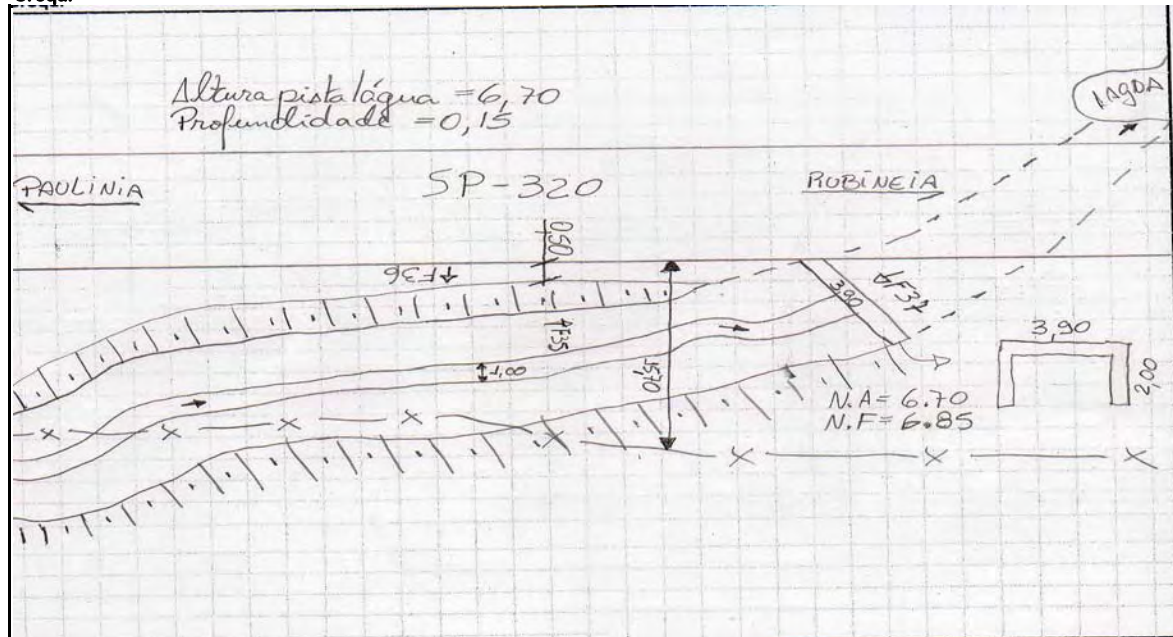 Altura pista/água = 6,70
Profundidade = 0,15
LAGOA
PAULINIA
SP-320
RUBINEIA
0,50
AF36
AF37
3,90
AF35
1,00
15,70
A
N.A = 6.70
N.F = 6.85
3,90
2,00